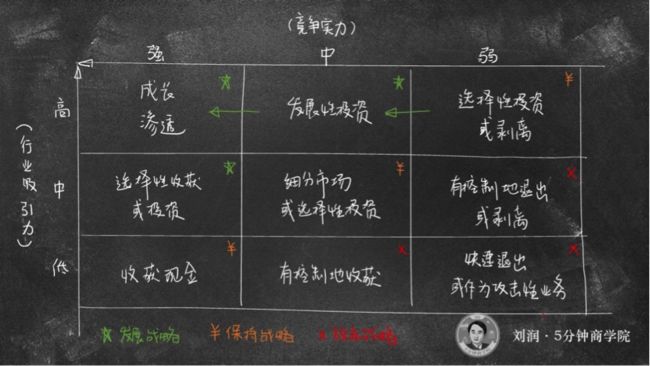 (竞争实力)
强 中 弱
高
成长
渗透
发展性投资
选择性投资
或剥离
(行业吸引力)
中
选择性收获
或投资
细分市场
或选择性投资
有控制地退出
或剥离
低
收获现金
有控制地收获
快速退出
或作为攻击性业务
发展战略 ¥保持战略 x
刘润·5分钟商学院